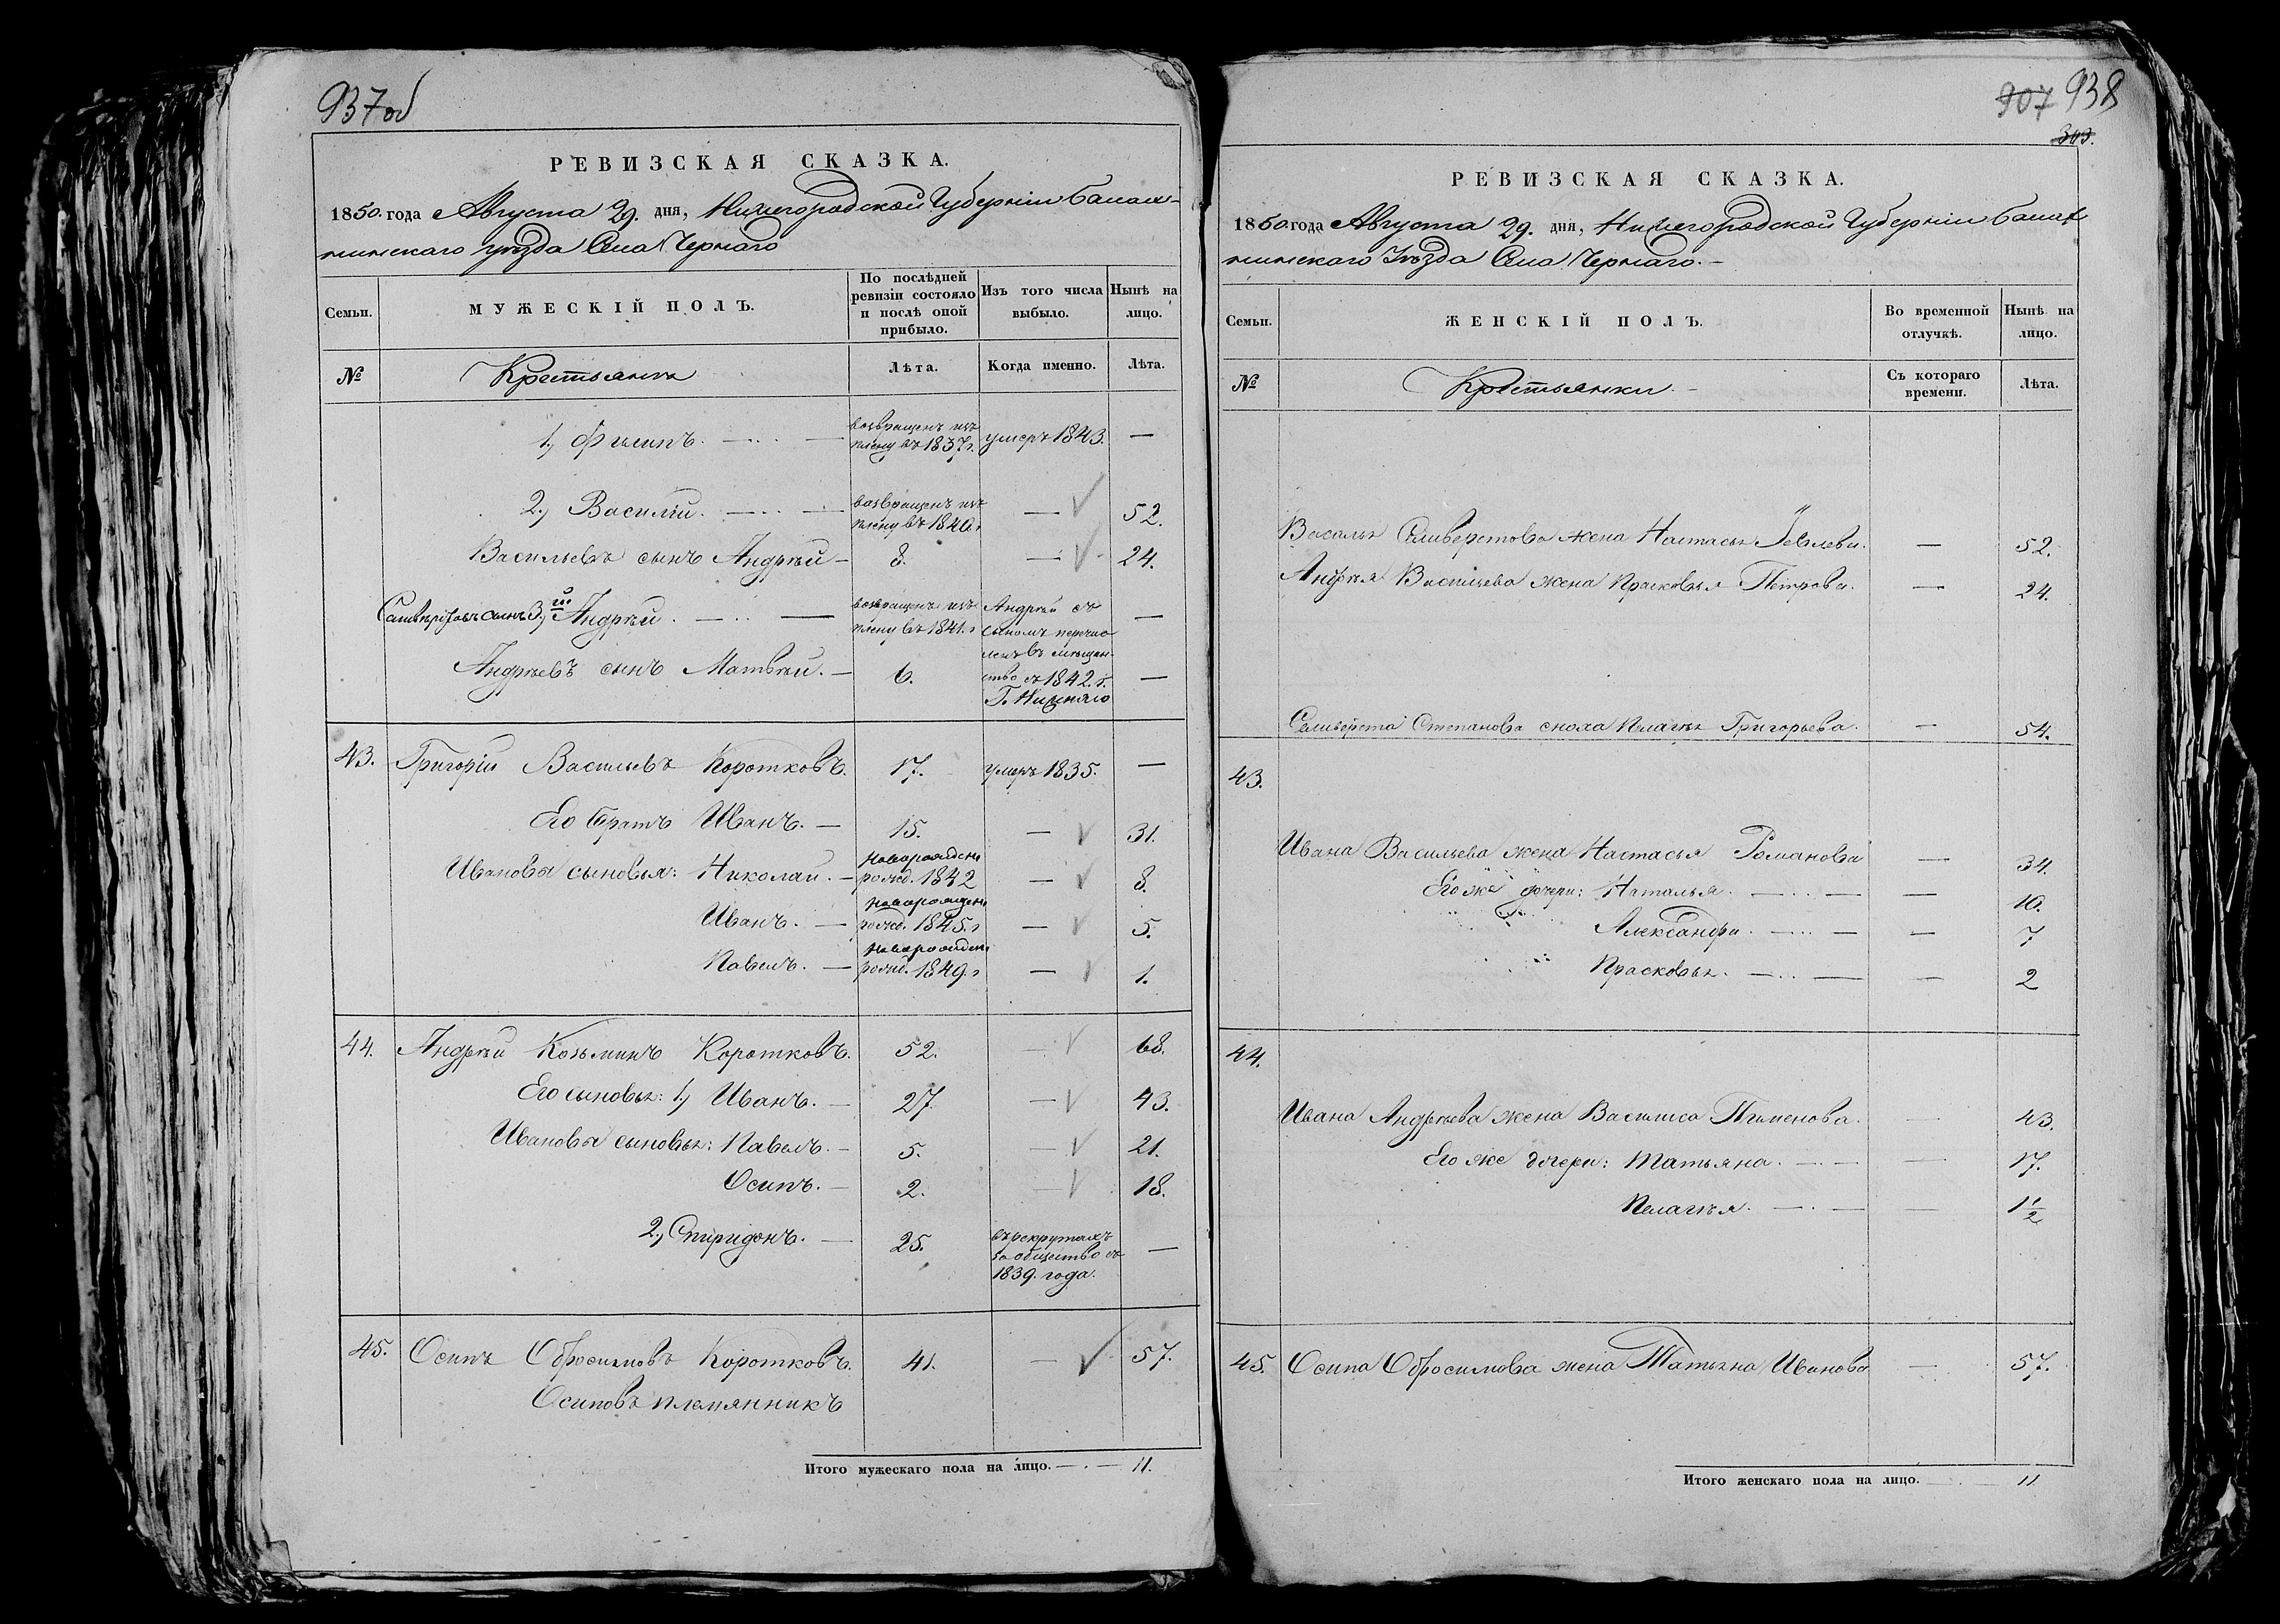 937об
РЕВИЗСКАЯ СКАЗКА.
1850. года Августа 29. дня, Нижегородской Губерніи Балах-
нинскаго уѣзда Села Чернаго
Семьи.
МУЖЕСКІЙ ПОЛЪ.
По послѣдней
ревизіи состояло
и послѣ оной
прибыло.
Изъ того числа
выбыло.
Нынѣ на
лицо.
№
Крестьяне
Лѣта.
Когда именно.
Лѣта.
1., Филипъ. — возвращенъ изъ
плену въ 1837г. умеръ 1843. —
2., Василій. — возвращенъ изъ
плену въ 1840.г — 52.
Васильевъ сынъ Андрѣй — 8. — 24.
Селиверстовъ сынъ 3.,й Андрѣй. — возвращенъ изъ
плену въ 1841.г Андрѣй съ
сыномъ перечис
ленъ въ мѣщан-
ство съ 1842. г.
Г. Нижняго —
Андрѣевъ сынъ Матвѣй. — 6. —
43. Григорій Васильевъ Коротковъ. 17. умеръ 1835. —
Его братъ Иванъ. — 15. — 31.
Ивановы сыновья: Николай. — Новорожден
рожд. 1842 — 8.
Иванъ. — новорожден
рожд. 1845.г — 5.
Павелъ. — новорожден
рожд. 1849.г — 1.
44. Андрѣй Козьминъ Коротковъ. 52. — 68.
Его сыновья: 1., Иванъ. — 27 — 43.
Ивановы сыновья: Павелъ. — 5. — 21.
Осипъ. — 2. — 18.
2., Спиридонъ. — 25. въ рекрутахъ
за общество съ
1839. года. —
45. Осипъ Обросимовъ Коротковъ. 41. — 57.
Осиповъ племянникъ
Итого мужескаго пола на лицо. — 11.
907 938
343.
РЕВИЗСКАЯ СКАЗКА.
1850 года Августа 29. дня, Нижегородской Губерніи Балах
нинскаго Уѣзда Села Чернаго. —
Семьи.
ЖЕНСКІЙ ПОЛЪ.
Во временной
отлучкѣ.
Нынѣ на
лицо.
№
Крестьянки. —
Съ котораго
времени.
Лѣта.
Василья Селиверстова жена Настасья Іевлева. — 52.
Андрѣя Васильева жена Прасковья Петрова. — 24.
Селиверста Степанова сноха Пелагѣя Григорьева. — 54.
43.
Ивана Васильева жена Настасья Романова — 34.
Его же дочери: Наталья. — 10.
Александра. — 7
Прасковья. — 2
44.
Ивана Андрѣева жена Василиса Пименова. — 43.
Его же дочери: Татьяна. — 17.
Пелагѣя. — 1 1/2
45. Осипа Обросимова жена Татьяна Иванова — 57.
Итого женскаго пола на лицо. — 11